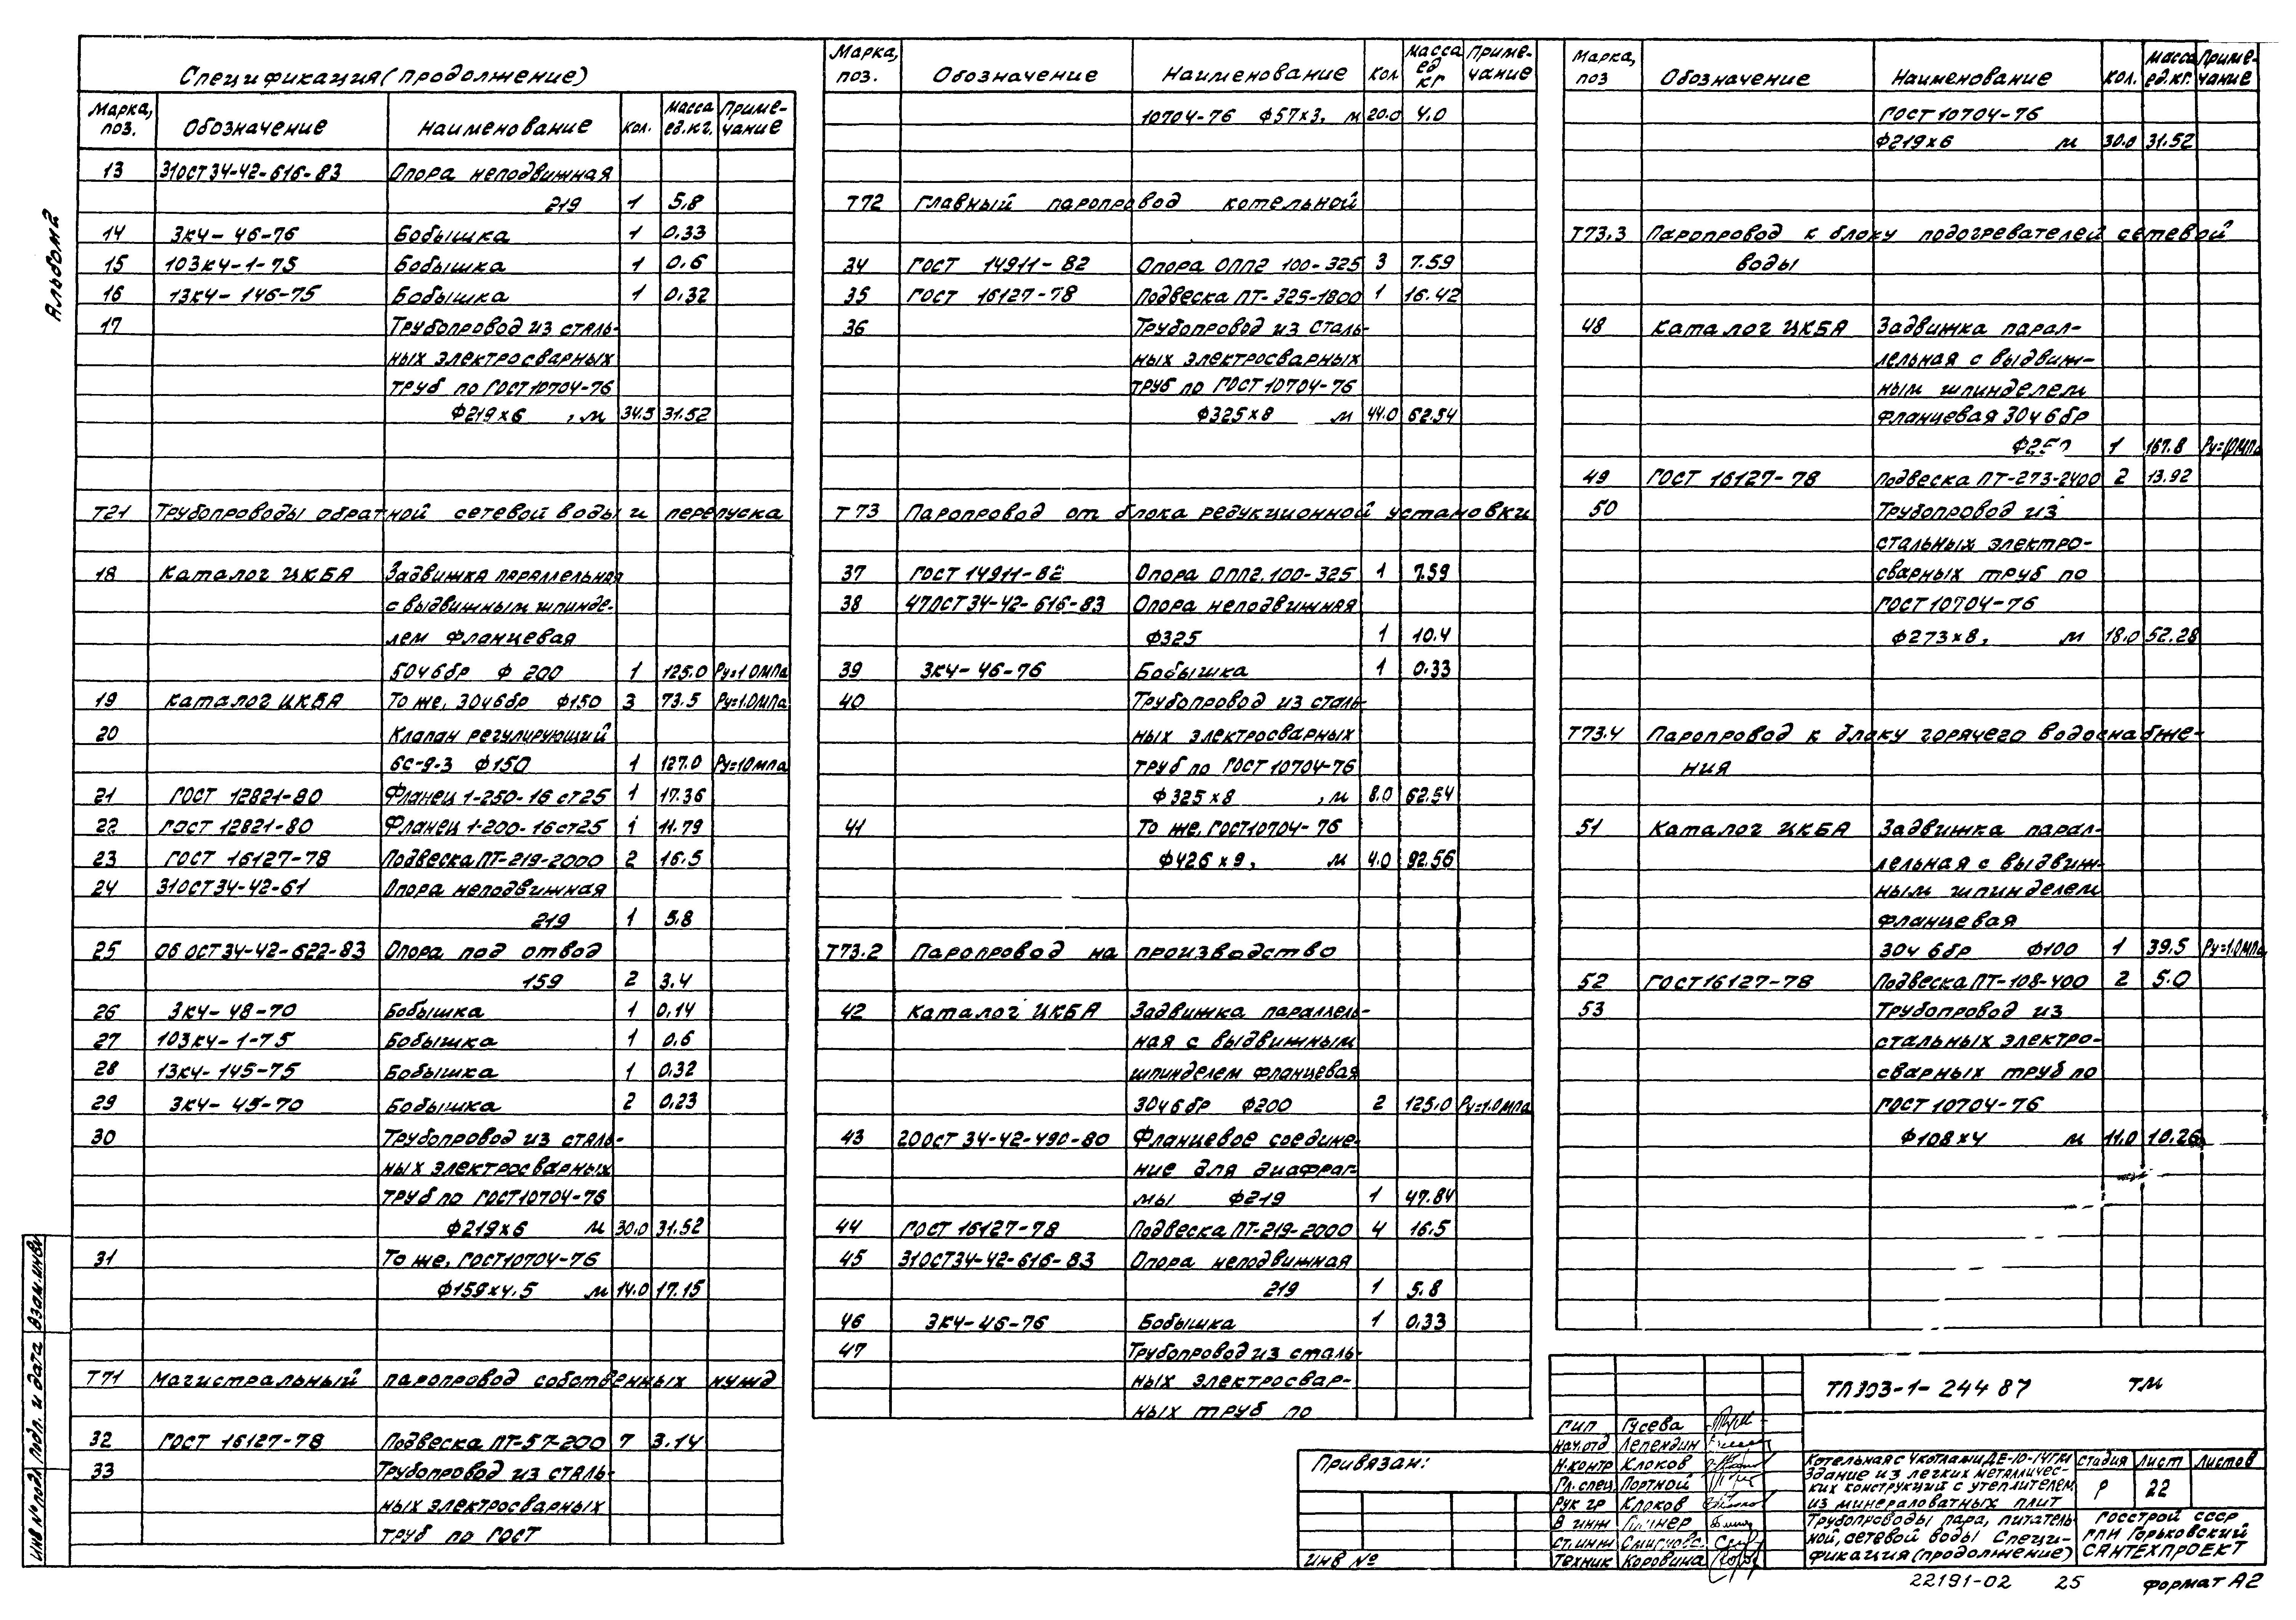 Альбом 2
Спецификация (продолжение)
Марка, поз. Обозначение Наименование Кол. Масса ед.кг. Приме-чание
13 31ОСТ34-42-616-83 Опора неподвижная
219 1 5,8
14 3К4-46-76 Бобышка 1 0,33
15 103К4-1-75 Бобышка 1 0,6
16 13К4-146-75 Бобышка 1 0,32
17 Трубопровод из сталь-
ных электросварных
труб по ГОСТ10704-76
Ф219х6 , м 34.5 31.52
Т21 Трубопроводы обратной сетевой воды и перепуска
18 Каталог ЦКБА Задвижка параллельная
с выдвижным шпинде-
лем фланцевая
5046бр Ф 200 1 125.0 Ру=1.0МПа
19 Каталог ЦКБА То же, 3046бр Ф150 3 73.5 Ру=1.0МПа
20 Клапан регулирующий
6с-9-3 Ф150 1 127.0 Ру=10МПа
21 ГОСТ 12821-80 Фланец 1-250-16 ст25 1 17.36
22 ГОСТ 12821-80 Фланец 1-200-16ст25 1 11.79
23 ГОСТ 16127-78 Подвеска ПТ-219-2000 2 16.5
24 31ОСТ34-42-61 Опора неподвижная
219 1 5.8
25 06 ОСТ34-42-622-83 Опора под отвод
159 2 3.4
26 3К4-48-70 Бобышка 1 0.14
27 103К4-1-75 Бобышка 1 0.6
28 13К4-145-75 Бобышка 1 0.32
29 3К4-45-70 Бобышка 2 0.23
30 Трубопровод из сталь-
ных электросварных
труб по ГОСТ10704-76
Ф219х6 м 30.0 31.52
31 То же, ГОСТ10704-76
Ф159х4.5 м 14.0 17.15
Т71 Магистральный паропровод собственных нужд
32 ГОСТ 16127-78 Подвеска ПТ-57-200 7 3.14
33 Трубопровод из сталь-
ных электросварных
труб по ГОСТ
Марка, поз. Обозначение Наименование Кол Масса ед кг Приме-чание
10704-76 Ф57х3, м 20.0 4.0
Т72 Главный паропровод котельной
34 ГОСТ 14911-82 Опора ОПП2 100-325 3 7.59
35 ГОСТ 16127-78 Подвеска ПТ-325-1800 1 16.42
36 Трубопровод из сталь-
ных электросварных
труб по ГОСТ10704-76
Ф325х8 м 44.0 62.54
Т73 Паропровод от блока редукционной установки
37 ГОСТ 14911-82 Опора ОПП2.100-325 1 7.59
38 47ОСТ34-42-616-83 Опора неподвижная
Ф325 1 10.4
39 3К4-46-76 Бобышка 1 0.33
40 Трубопровод из сталь-
ных электросварных
труб по ГОСТ10704-76
Ф325х8 , м 8.0 62.54
41 То же, ГОСТ10704-76
Ф426х9, м 4.0 92.56
Т73.2 Паропровод на производство
42 Каталог ЦКБА Задвижка параллель-
ная с выдвижным
шпинделем фланцевая
3046бр Ф200 2 125.0 Ру=1.0МПа
43 20ОСТ 34-42-490-80 Фланцевое соедине-
ние для диафраг-
мы Ф219 1 47.84
44 ГОСТ 16127-78 Подвеска ПТ-219-2000 4 16.5
45 31ОСТ34-42-616-83 Опора неподвижная
219 1 5.8
46 3К4-46-76 Бобышка 1 0.33
47 Трубопровод из сталь-
ных электросвар-
ных труб по
Марка, поз Обозначение Наименование Кол. Масса ед.кг. Приме-чание
ГОСТ 10704-76
Ф219х6 м 30.0 31.52
Т73.3 Паропровод к блоку подогревателей сетевой
воды
48 Каталог ЦКБА Задвижка парал-
лельная с выдвиж-
ным шпинделем
фланцевая 3046бр
Ф250 1 167.8 Ру=10МПа
49 ГОСТ 16127-78 Подвеска ПТ-273-2400 2 13.92
50 Трубопровод из
стальных электро-
сварных труб по
ГОСТ 10704-76
Ф273х8, м 18.0 52.28
Т73.4 Паропровод к блоку горячего водоснабже-
ния
51 Каталог ЦКБА Задвижка парал-
лельная с выдвиж-
ным шпинделем
фланцевая
304 6бр Ф100 1 39.5 Ру=1.0МПа
52 ГОСТ16127-78 Подвеска ПТ-108-400 2 5.0
53 Трубопровод из
стальных электро-
сварных труб по
ГОСТ 10704-76
Ф108х4 м 11.0 10.26
ТП903-1-244 87 ТМ
ГИП Гусева
Нач.отд Лепендин
Н.контр Клоков
Гл.спец Портной
Рук гр Клоков
В инж
Ст.инж Смирнова
Техник Коровина
Привязан:
Инв №
Котельная с 4 котлами ДЕ-10-14ГМ
Здание из легких металличес-
ких конструкций с утеплителем
из минераловатных плит
Стадия Лист Листов
Р 22
Трубопроводы пара, питатель-
ной, сетевой воды Специ-
фикация (продолжение)
Госстрой СССР
ГПИ Горьковский
САНТЕХПРОЕКТ
Инв № подл Подп. и дата Взам.инв№
22191-02 25 Формат А2